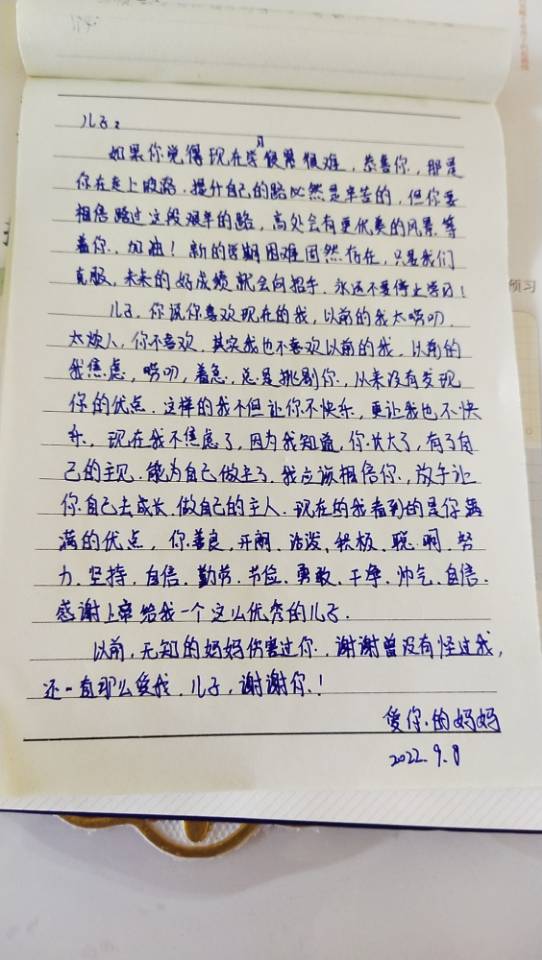 儿子:
如果你觉得现在学习很累很难,恭喜你,那是
你在走上坡路.提升自己的路必然是辛苦的,但你要
相信路过这段艰辛的路,高处会有更优美的风景等
着你,加油!新的学期困难固然存在,只要我们
克服,未来的好成绩就会向招手.永远不要停止学习!
儿子,你说你喜欢现在的我,以前的我太唠叨.
太烦人,你不喜欢.其实我也不喜欢以前的我.以前的
我焦虑,唠叨,着急,总是挑剔你,从来没有发现
你的优点.这样的我不但让你不快乐,更让我也不快
乐,现在我不焦虑了,因为我知道,你长大了,有了自
己的主见.能为自己做主了.我应该相信你.放手让
你自己去成长.做自己的主人.现在的我看到的是你满
满的优点,你善良,开朗.活泼,积极,聪明,努
力.坚持,自信,勤劳,节俭.勇敢,干净,帅气,自信.
感谢上帝给我一个这么优秀的儿子.
以前,无知的妈妈伤害过你,谢谢曾没有怪过我,
还一直那么爱我.儿子,谢谢你!
爱你的妈妈
2022.9.8
预习